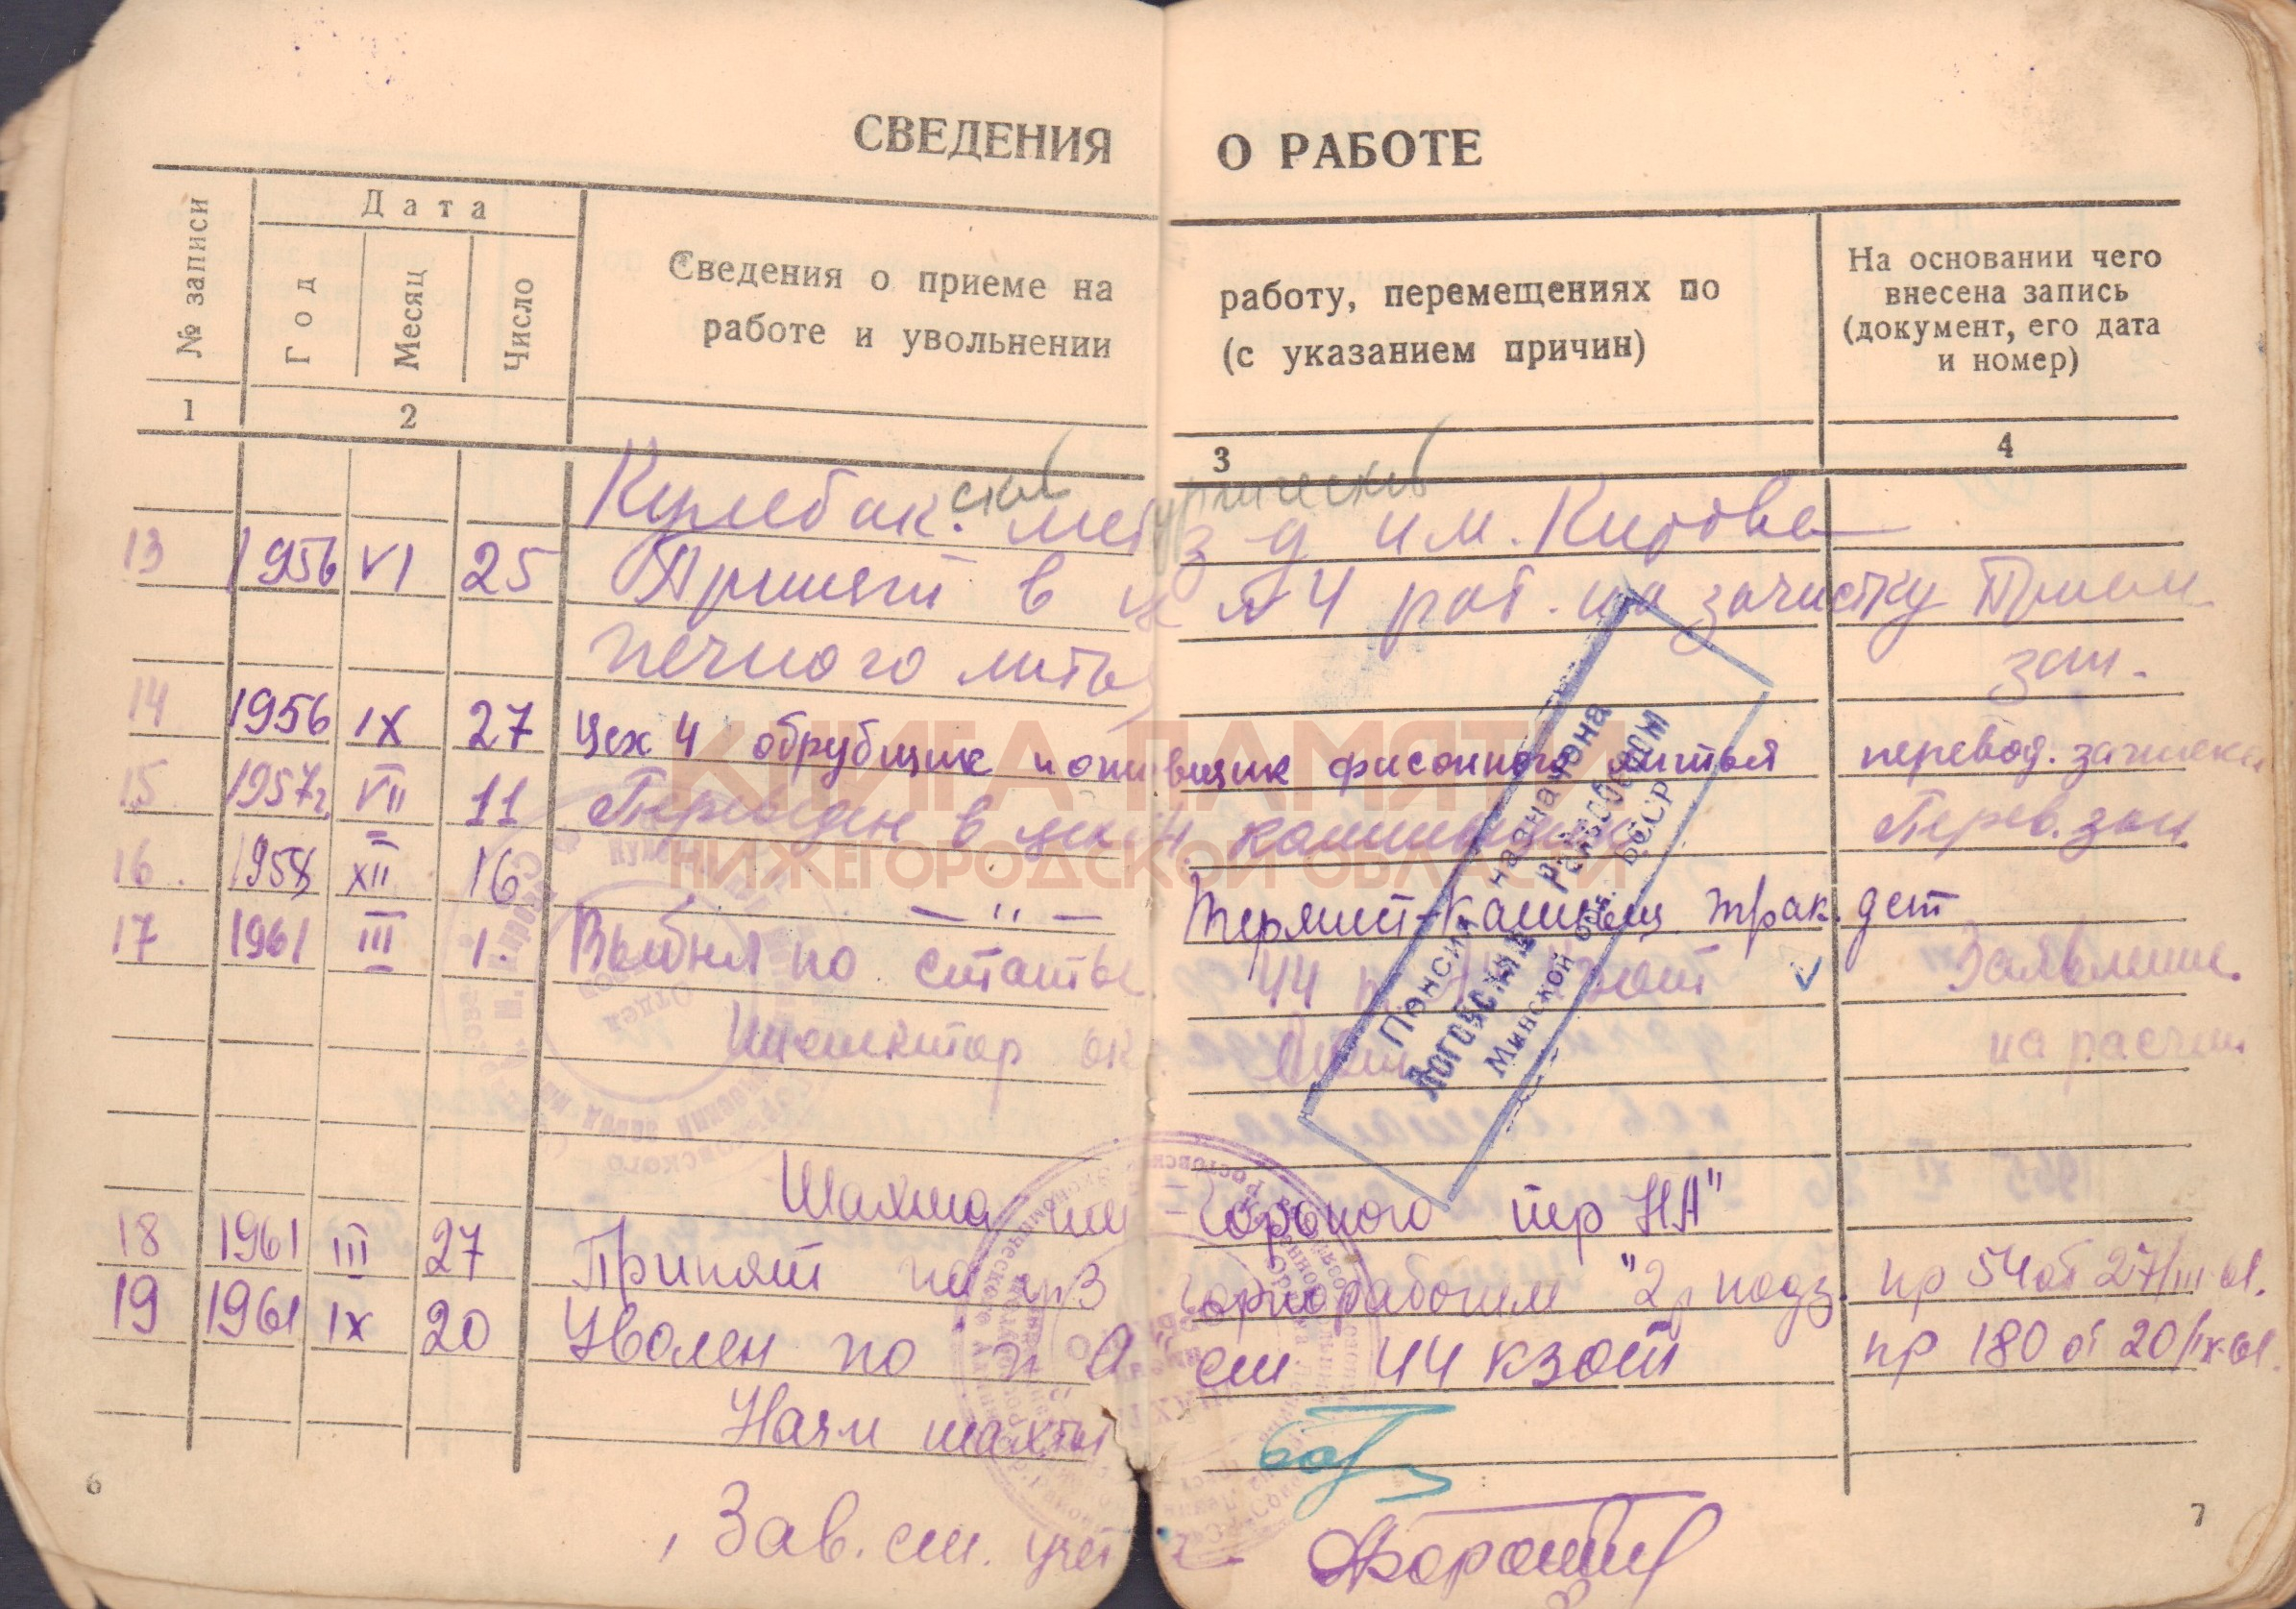 СВЕДЕНИЯ О РАБОТЕ
№ записи
Дата
Год
Месяц
Число
Сведения о приеме на работу, перемещениях по
работе и увольнении (с указанием причин)
На основании чего
внесена запись
(документ, его дата
и номер)
1 2 3 4
Кулебак. ский мет ургический з д им. Кирова
13 1956 VI 25 Принят в ц №4 раб. на зачистку Прием
печного литья зап.
14 1956 IX 27 Цех 4 обрубщик фасонного литья перевод. записка
15 1957г. VII 11 Переведен в цех 4. Перев. зап
16. 1958 XII 16 — " — Термист-калильщ. трак. дет
17 1961 III 1. Выбыл по статье 44 кзот Заявление.
Инспектор ок. на расчет
Шахта им Горького тер НА"
18 1961 III 27 Принят на уч3 горнорабочим "2р подз. пр 54 от 27/III-61.
19 1961 IX 20 Уволен по п А ст 44 кзот пр 180 от 20/IX-61.
Нач-к шахты
Зав. ст. учет
Пенсия назначена
Логойским Райсобесом
Минской обл. БССР
КНИГА ПАМЯТИ
НИЖЕГОРОДСКОЙ ОБЛАСТИ
6
7